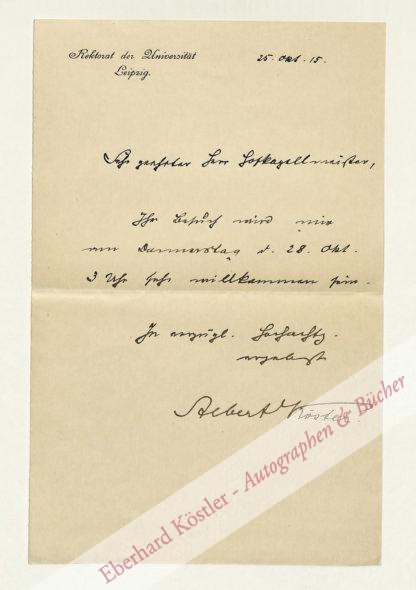 Rektorat der Universität
Leipzig.
25. Okt. 15.
Sehr geehrter Herr Hofkapellmeister,
Ihr Besuch wird mir
am Donnerstag d. 28. Okt.
3 Uhr sehr willkommen sein.
In vorzügl. Hochachtg.
ergebenst
Albert Köster
Eberhard Köstler - Autographen & Bücher